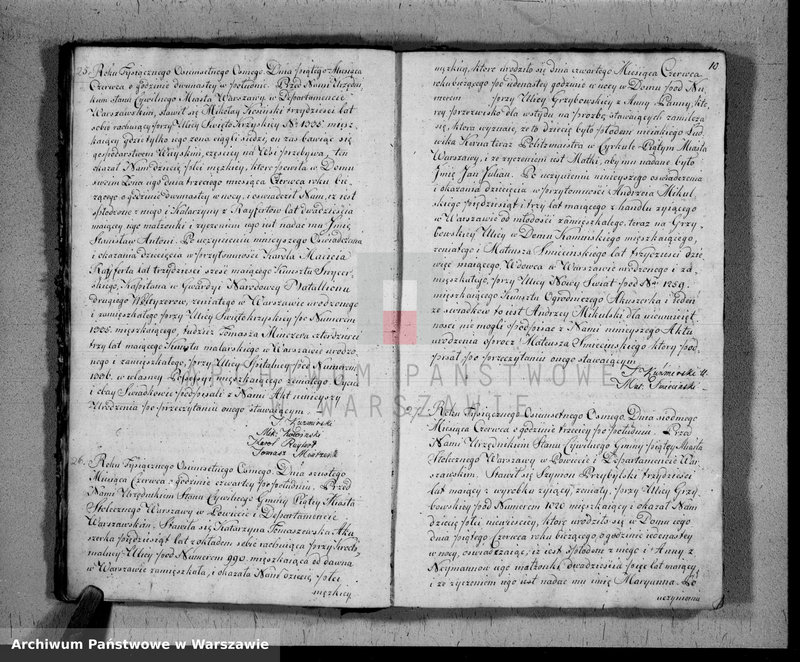 25. Roku Tysiącznego Osiemsetnego Osmego. Dnia Piątego Miesiąca
Czerwca o godzinie dwunastey w południe. Przed Nami Urzędni-
kiem Stanu Cywilnego Miasta Warszawy w Departamencie
Warszawskim, stawił się Mikołay Kosinski trzydziesci lat
sobie rachuiący przy Ulicy Swięto Krzyskiey No 1335. miesz-
kaiący gdzie tylko iego żona ciągle siedzi, on zaś bawiąc się
gospodarstwem Wieyskim, częściey na Wsi przebywa, ten
okazał Nam Dziecię płci męzkiey, które powiła w Domu
swoim Żona iego dnia trzeciego miesiąca Czerwca roku bie-
rzącego o godzinie dwunastey w nocy, i oswiadczył Nam, iż iest
spłodzone z niego i Katarzyny z Rayfertow lat dwadzieścia
maiącey iego małżonki i życzeniem iego iest nadać mu Imię
Stanisław Antoni. Po uczynieniu ninieyszego Oswiadczenia
i okazaniu dziecięcia w przytomności Karola Macieia
Rayferta lat trzydziesci sześć maiącego Kunsztu Snycer-
skiego, Kapitana w Gwardyi Narodowey Batallionu
drugiego Woltyżerow, żeniatego w Warszawie urodzonego
i zamieszkałego przy Ulicy Swiętokrzyskiey po Numerem
1335. mieszkaiącego, tudzież Tomasza czterdziesci
trzy lat maiącego Kunsztu malarskiego w Warszawie urodzo-
nego i zamieszkałego, przy Ulicy Szpitalney pod Numerem
1336. w własney Possessyi mieszkaiącego żeniatego. Oyciec
i dway Swiadkowie podpisali z Nami Akt ninieyszy
Urodzenia po przeczytaniu onego stawaiącym.
J. Kuzmirski
Mik: Kosinski
Karol Reyfert
Tomasz
26. Roku Tysiącznego Osiemsetnego Osmego. Dnia szostego
Miesiąca Czerwca o godzinie czwartey po południu. Przed
Nami Urzędnikiem Stanu Cywilnego Gminy Piątey Miasta
Stołecznego Warszawy w Powiecie i Departamencie
Warszawskim. Stawiła się Katarzyna Tomaszewska Aku-
szerka pięćdziesiąt lat z okładem sobie rachuiąca przy
Ulicy pod Numerem 990. mieszkaiąca od dawna
w Warszawie zamieszkała, i okazała Nam dziecię płci
męzkiey
10
męzkiey, które urodziło się dnia czwartego Miesiąca Czerwca
roku bieżącego po iedenastey godzinie w nocy w Domu pod Nu-
merem przy Ulicy Grzybowskiey z Anny Panny, któ-
rey przezwisko dla wstydu na prozbę stawaiących zamilcza
się, która wyznaie, że to dziecię było płodem nieiakiego Lud-
wika teraz Politzmaistra w Cyrkule Piątym Miasta
Warszawy, i że życzeniem iest Matki, aby mu nadane było
Imię Jan Julian. Po uczynieniu ninieyszego oswiadczenia
i okazania dziecięcia w przytomności Andrzeia Mikul-
skiego pięćdziesiąt i trzy lat maiącego z handlu żyiącego
w Warszawie od młodości zamieszkałego, teraz na Grzy-
bowskiey Ulicy w Domu Kaminskiego mieszkaiącego,
żeniatego i Mateusza Smiecinskiego lat trzydziesci dzie-
więć maiącego, Wdowca w Warszawie urodzonego i za-
mieszkałego, przy Ulicy Nowy Swiat pod Nrm 1259.
mieszkaiącego Kunsztu Ogrodniczego Akuszerka i ieden
ze swiadkow to iest Andrzey Mikulski dla nieumieięt-
ności nie mogli podpisać z Nami ninieyszego Aktu
urodzenia oprocz Mateusza Smiecinskiego ktory pod-
pisał po przeczytaniu onego stawaiącym.
J. Kuzmirski
Mat. Smiecinski
27. Roku Tysiącznego Osiemsetnego Osmego. Dnia siodmego
Miesiąca Czerwca o godzinie trzeciey po południu. Przed
Nami Urzędnikiem Stanu Cywilnego Gminy piątey Miasta
Stołecznego Warszawy w Powiecie i Departamencie War-
szawskim. Stawił się Szymon Przybylski trzydziesci
lat maiący z wyrobku żyiący, żeniaty, przy Ulicy Grzy-
bowskiey pod Numerem 1020 mieszkaiący i okazał Nam
dziecię płci niewieściey, które urodziło się w Domu iego
dnia piątego Czerwca roku bieżącego o godzinie iedenastey
w nocy, oswiadczaiąc, iż iest spłodzone z niego i Anny z
Neymannow iego małżonki dwadzieścia pięć lat maiącey
i że życzeniem iego iest nadać mu imię Maryanna. Po
uczynieniu
ARCHIWUM PAŃSTWOWE
W WARSZAWIE
Archiwum Państwowe w Warszawie